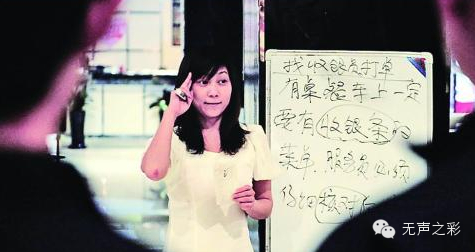 找收银员打单
有桌餐车上一定
要有收银条的
菜单, 员必须
仔细核对后
无声之彩